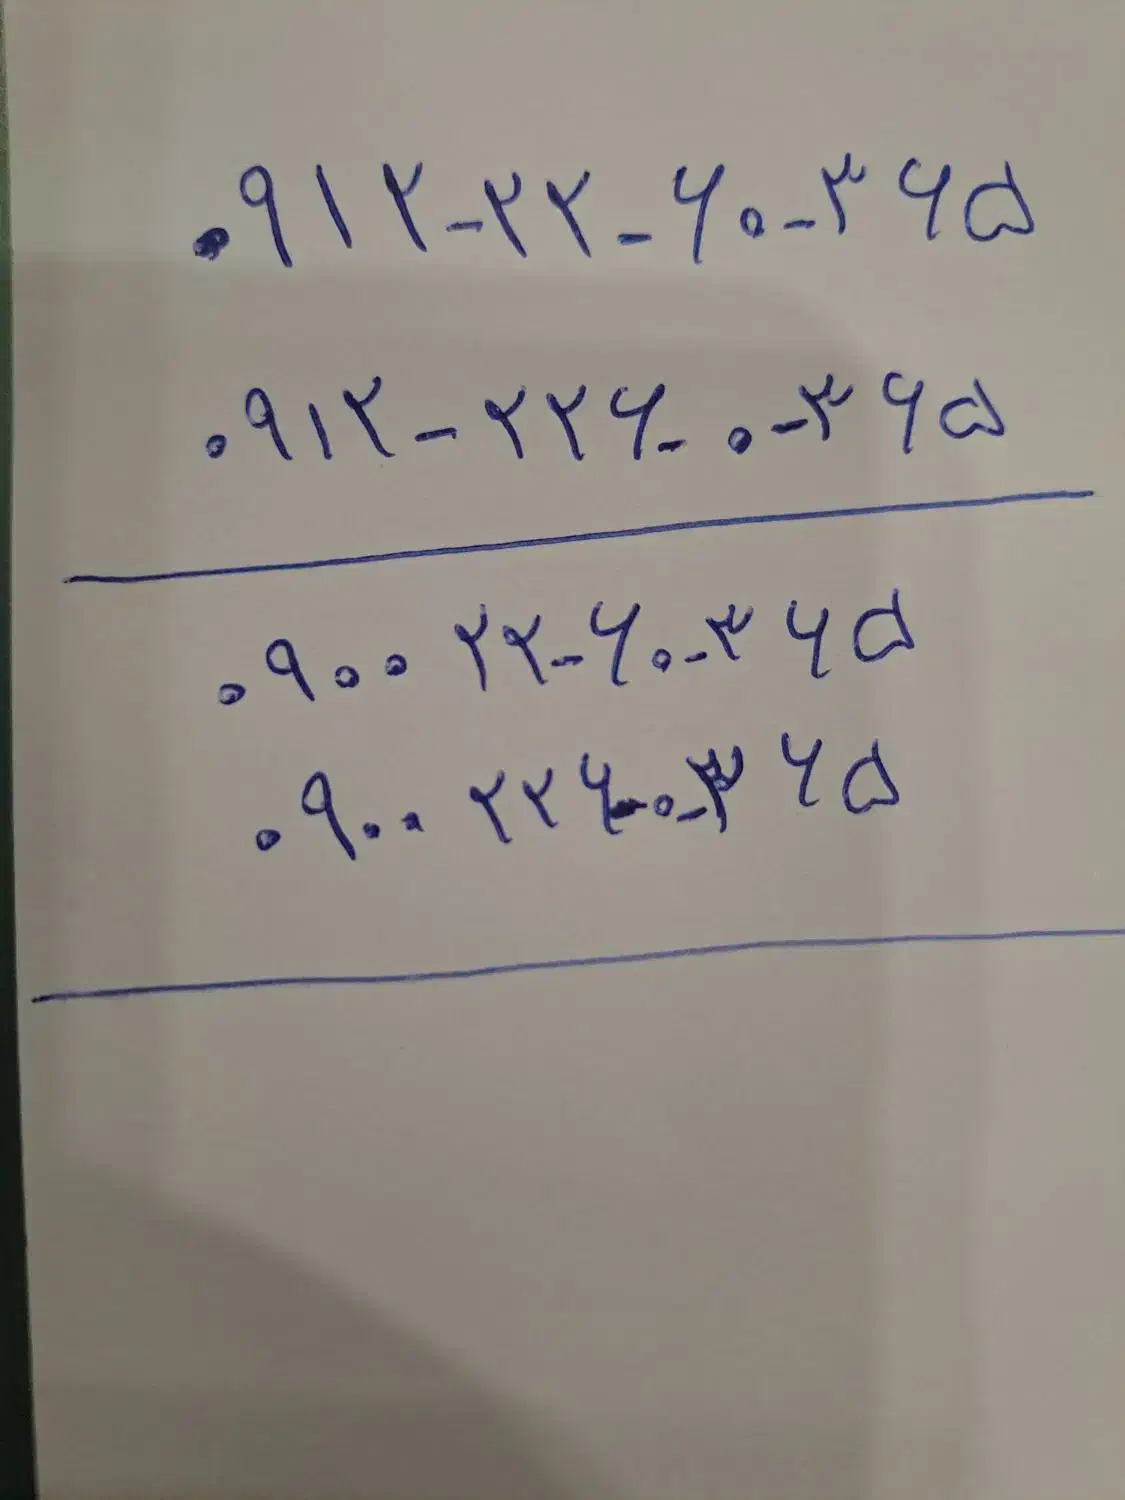 ۰۹۱۲-۲۲-۶۰-۳۶۵
۰۹۱۲-۲۲۶-۰-۳۶۵
۰۹۰۰ ۲۲-۶۰-۳۶۵
۰۹۰۰ ۲۲۶-۰-۳۶۵